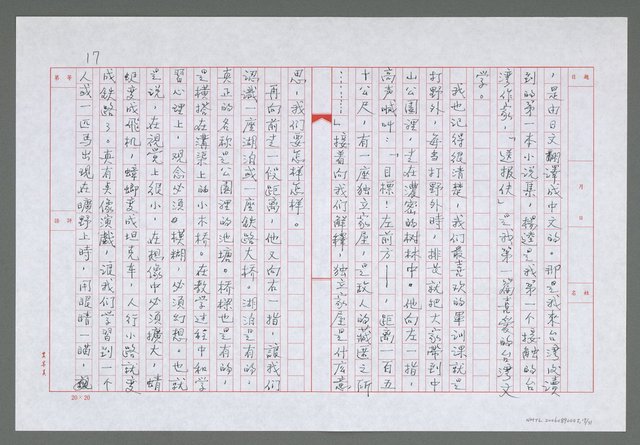 ，是由日文翻譯成中文的。那是我來台灣後讀
到的第一本小說集，楊逵是我第一個接觸的台
灣作家，「送報伕」是我第一篇喜愛的台灣文
學。
我也記得很清楚，我們最喜歡的軍訓課就是
打野外，每當打野外時，排長就把大家帶到中
山公園裡，走在濃密的樹林中。他向左一指，
高聲喊叫：「目標！左前方——，距離一百五
十公尺，有一座獨立家屋，是敵人的藏匿之所
……」接著向我們解釋，獨立家屋是什麼意
思，我們要怎樣怎樣。
再向前走一段距離，他又向右一指，讓我們
認識一座湖泊或一座鐵路大橋。湖泊是有的，
真正的名稱是公園裡的池塘。橋樑也是有的，
是橫搭在溝渠上的小木橋。在教學過程中和學
習心理上，觀念必須模糊，必須幻想。也就
是說，在視覺上很小，在想像中必須擴大，蜻
蜓變成飛机，蟑螂變成坦克車，人行小路就變
成鐵路了。真有點像演戲，讓我們學習到一個
人或一匹馬出現在曠野上時，用眼睛一瞄，
17
題目
月
日
姓名
等第
評語
20×20